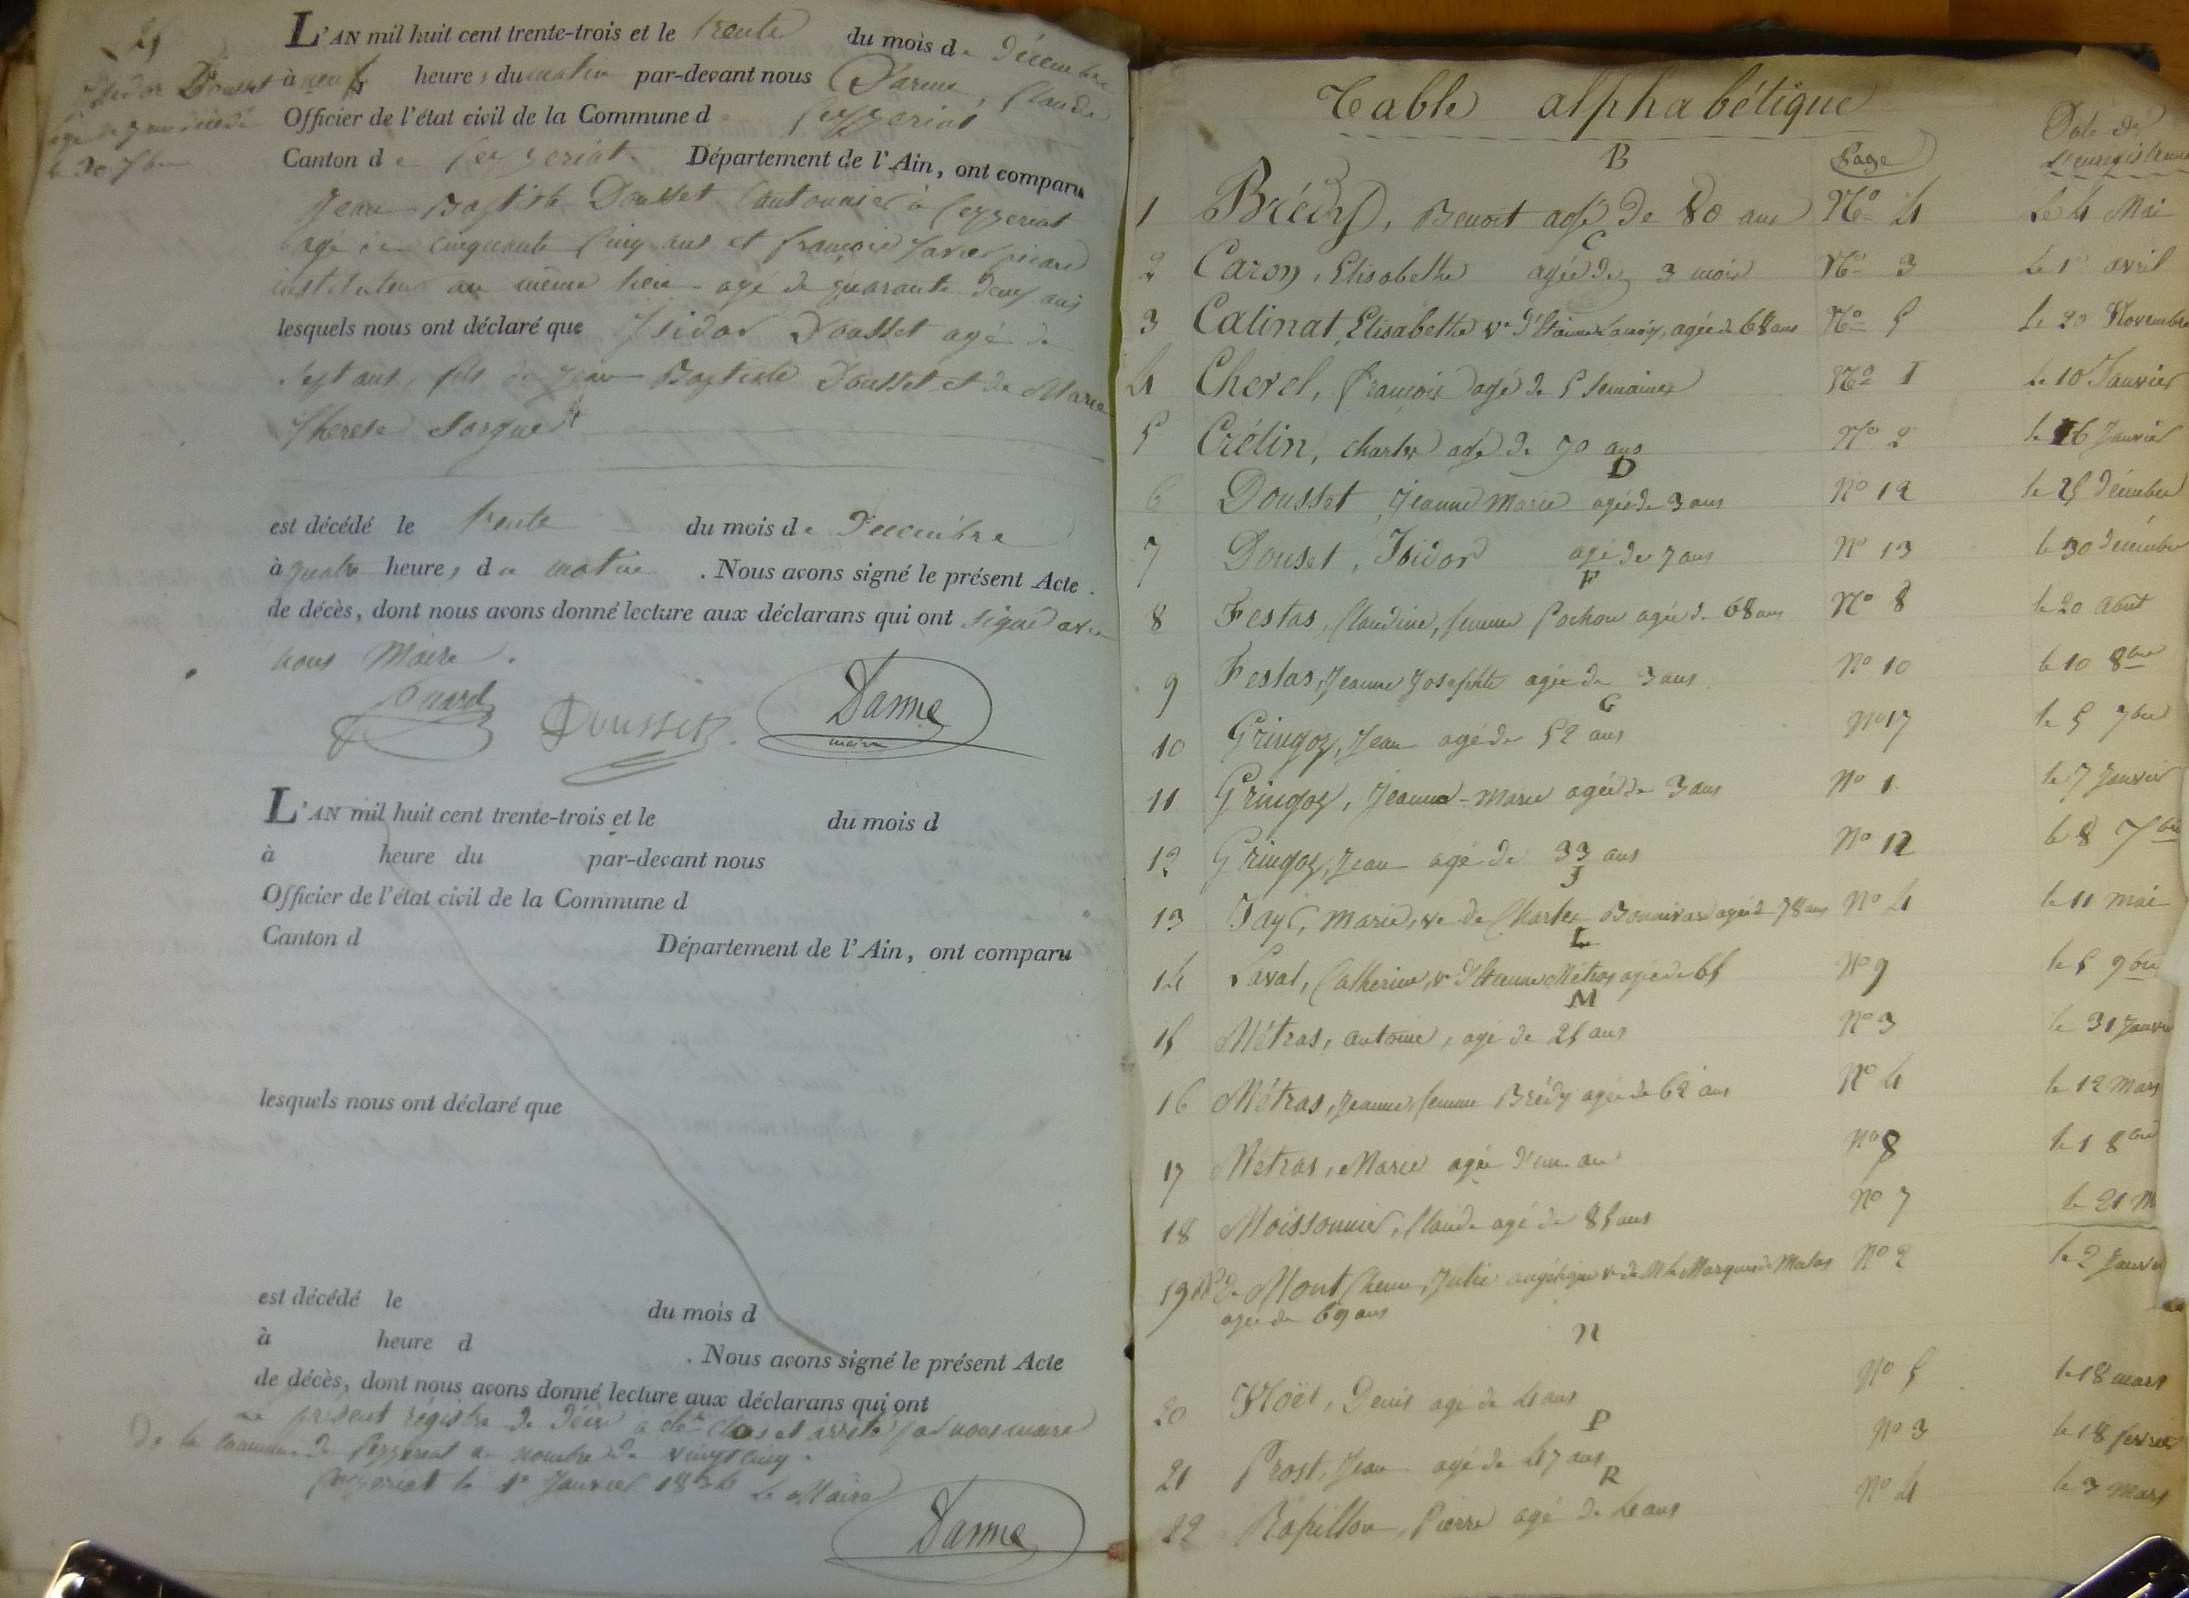 L'AN mil huit cent trente-trois et le trente du mois de Décembre
à neuf heures du matin par-devant nous Darme, Claude
Officier de l'état civil de la Commune d Ceyzeriat
Canton de Ceyzeriat Département de l'Ain, ont comparu
Jean Baptiste Dousset Cantonnier à Ceyzeriat
agé de cinquante cinq ans et françois Xavier
instituteur au même lieu agé de quarante deux ans
lesquels nous ont déclaré que Isidor Dousset agé de
Sept ans, fils de Jean Baptiste Dousset et de Marie
Therese
est décédé le trente du mois de Decembre
à quatre heures du matin . Nous avons signé le présent Acte
de décès, dont nous avons donné lecture aux déclarans qui ont signé avec
nous Maire.
Dousset
Darme
maire
L'AN mil huit cent trente-trois et le du mois d
à heure du par-devant nous
Officier de l'état civil de la Commune d
Canton d Département de l'Ain, ont comparu
lesquels nous ont déclaré que
est décédé le du mois d
à heure d . Nous avons signé le présent Acte
de décès, dont nous avons donné lecture aux déclarans qui ont
Le présent régistre de décès a été Clos et arrêté par nous maire
De la Commune de Ceyzeriat au nombre de vingt cinq.
Ceyzeriat le 1er Janvier 1834 Le Maire
Darme
Table alphabétique
B Page Date de
1 Brédy, Benoit agé de 80 ans No 4 Le 4 Mai
C
2 Caron, Elisabethe agée de 3 mois No 3 Le 1er avril
3 Catinat, Elisabethe ve d'Etienne agée de 68 ans No 5 Le 20 Novembre
4 Chevel, françois agé de 5 semaines No 1 Le 10 Janvier
5 Crétin, charles agé de 70 ans No 2 le 16 Janvier
D
6 Dousset, Jeanne Marie agée de 3 ans No 12 le 25 décembre
7 Douset, Isidor agé de 7 ans No 13 le 30 décembre
F
8 Festas, Claudine, femme Pochon agée de 68 ans No 8 le 20 Août
9 Festas, Jeanne Josephte agée de 3 ans No 10 le 10 8bre
G
10 Gringoz, Jean agé de 52 ans No 17 le 5 7bre
11 Gringoz, Jeanne-Marie agée de 3 ans No 1 le 7 Janvier
12 Gringoz, Jean agé de 33 ans No 12 le 8 7bre
J
13 Jayr, Marie, ve de Charles Bonnivard agée de 78 ans No 4 le 11 mai
L
14 Laval, Catherine, ve d'Etienne Métras agée de 65 No 9 le 5 9bre
M
15 Métras, Antoine, agé de 25 ans No 3 le 31 Janvier
16 Métras, Jeanne, femme Brédy agée de 62 ans No 4 le 12 mars
17 Métras, Marie agée d'un an No 8 le 1 8bre
18 Moissonnier, Claude agé de 85 ans No 7 le 21
19 De Mont Chenu, Julie angelique ve de Mr le Marquis de No 2 le 2 Janvier
agée de 69 ans
N
20 Noël, Denis agé de 4 ans No 5 le 18 mars
P
21 Prost, Jean agé de 47 ans No 3 le 18 fevrier
R
22 Rapillon, Pierre agé de 4 ans No 4 le 3 Mars